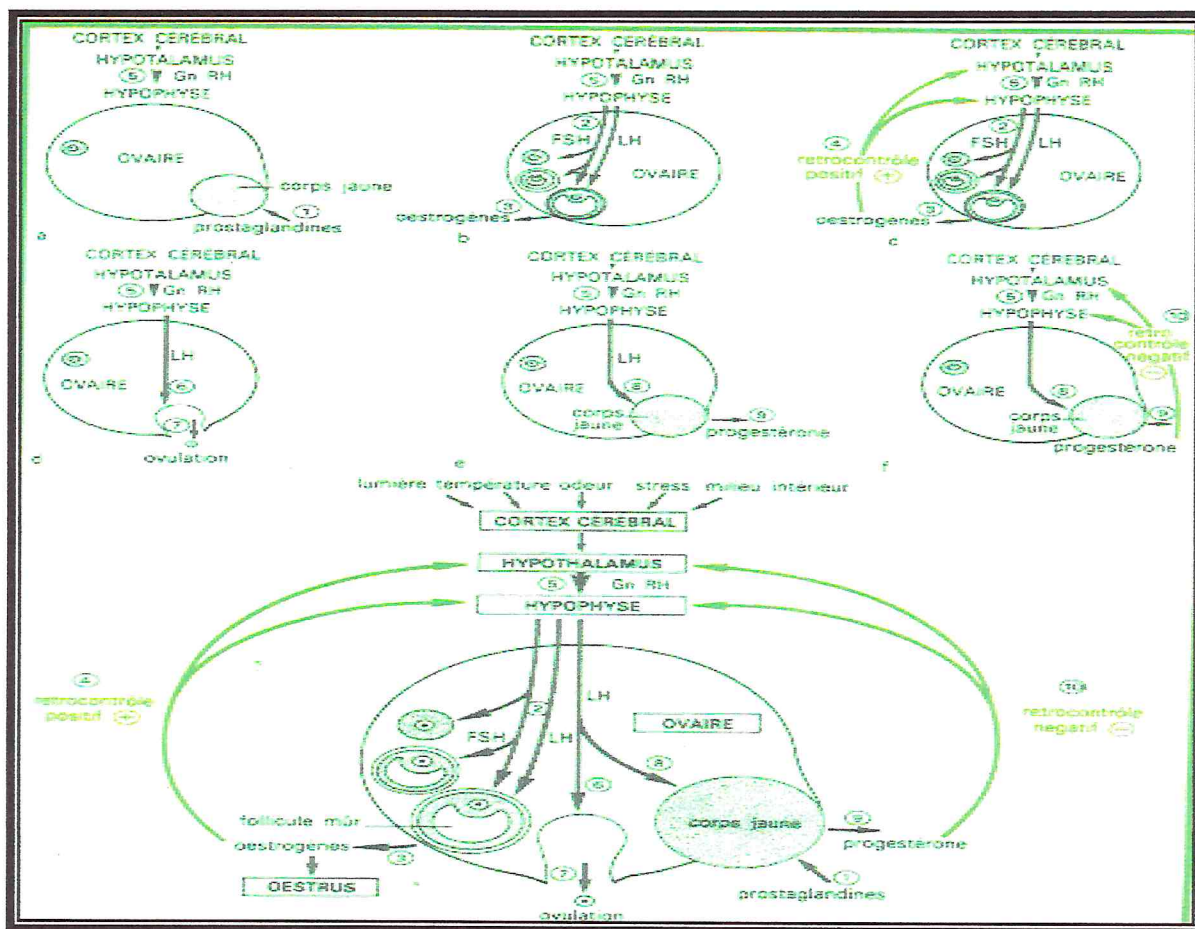 CORTEX CÉRÉBRAL
HYPOTALAMUS
5 Gn RH
HYPOPHYSE
OVAIRE
corps jaune
1
prostaglandines
a
CORTEX CÉRÉBRAL
HYPOTALAMUS
5 Gn RH
HYPOPHYSE
2
FSH LH
OVAIRE
3
oestrogènes
b
CORTEX CÉRÉBRAL
HYPOTALAMUS
5 Gn RH
HYPOPHYSE
4
retrocontrôle
positif +
2
FSH LH
OVAIRE
3
oestrogènes
CORTEX CÉRÉBRAL
HYPOTALAMUS
5 Gn RH
HYPOPHYSE
LH
OVAIRE
6
7
ovulation
d
CORTEX CÉRÉBRAL
HYPOTALAMUS
5 Gn RH
HYPOPHYSE
LH
OVAIRE
8
corps
jaune
9
progestérone
e
CORTEX CÉRÉBRAL
HYPOTALAMUS
5 Gn RH
HYPOPHYSE
10
retro
contrôle
négatif
−
LH
OVAIRE
8
corps
jaune
9
progestérone
f
lumière température odeur stress milieu intérieur
CORTEX CÉRÉBRAL
HYPOTHALAMUS
5 Gn RH
HYPOPHYSE
4
retrocontrôle
positif +
10
retrocontrôle
négatif −
LH
OVAIRE
2
FSH LH
8
6
follicule mûr
corps jaune
9
oestrogènes
3
progestérone
OESTRUS
7
1
prostaglandines
ovulation